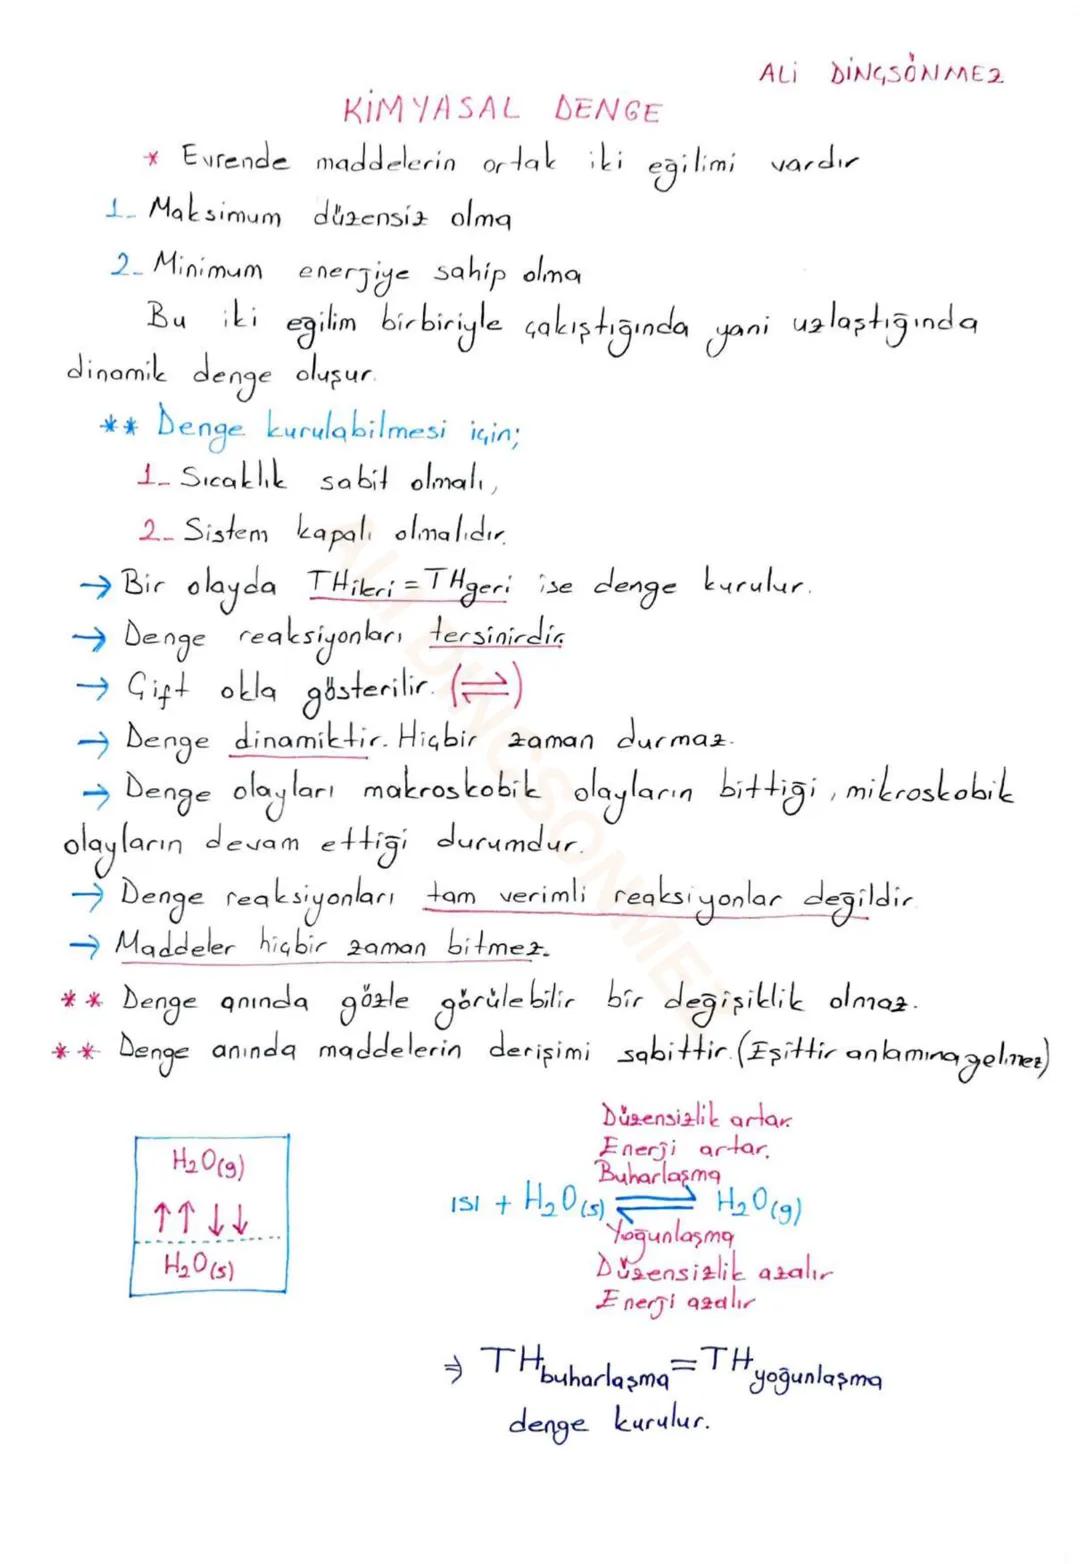 ALİ DİNÇSÖNMEZ
KİMYASAL DENGE
* Evrende maddelerin ortak iki eğilimi vardır
1- Maksimum düzensiz olma
2- Minimum enerjiye sahip olma
Bu iki eğilim birbiriyle çakıştığında yani uzlaştığında
dinamik denge oluşur.
** Denge kurulabilmesi için;
1- Sıcaklık sabit olmalı,
2- Sistem kapalı olmalıdır.
→ Bir olayda THileri = THgeri ise denge kurulur.
→ Denge reaksiyonları tersinirdir.
→ Çift okla gösterilir. (⇌)
→ Denge dinamiktir. Hiçbir zaman durmaz.
→ Denge olayları makroskobik olayların bittiği, mikroskobik
olayların devam ettiği durumdur.
→ Denge reaksiyonları tam verimli reaksiyonlar değildir.
→ Maddeler hiçbir zaman bitmez.
** Denge anında gözle görülebilir bir değişiklik olmaz.
** Denge anında maddelerin derişimi sabittir. (Eşittir anlamına gelmez)
H₂O(g)
↑↑↓↓
H₂O(s)
Düzensizlik artar.
Enerji artar.
Buharlaşma
ISI + H₂O(s) ⇌ H₂O(g)
Yoğunlaşma
Düzensizlik azalır
Enerji azalır
⇒ THbuharlaşma = THyoğunlaşma
denge kurulur.
ALİ DİNÇSÖNMEZ